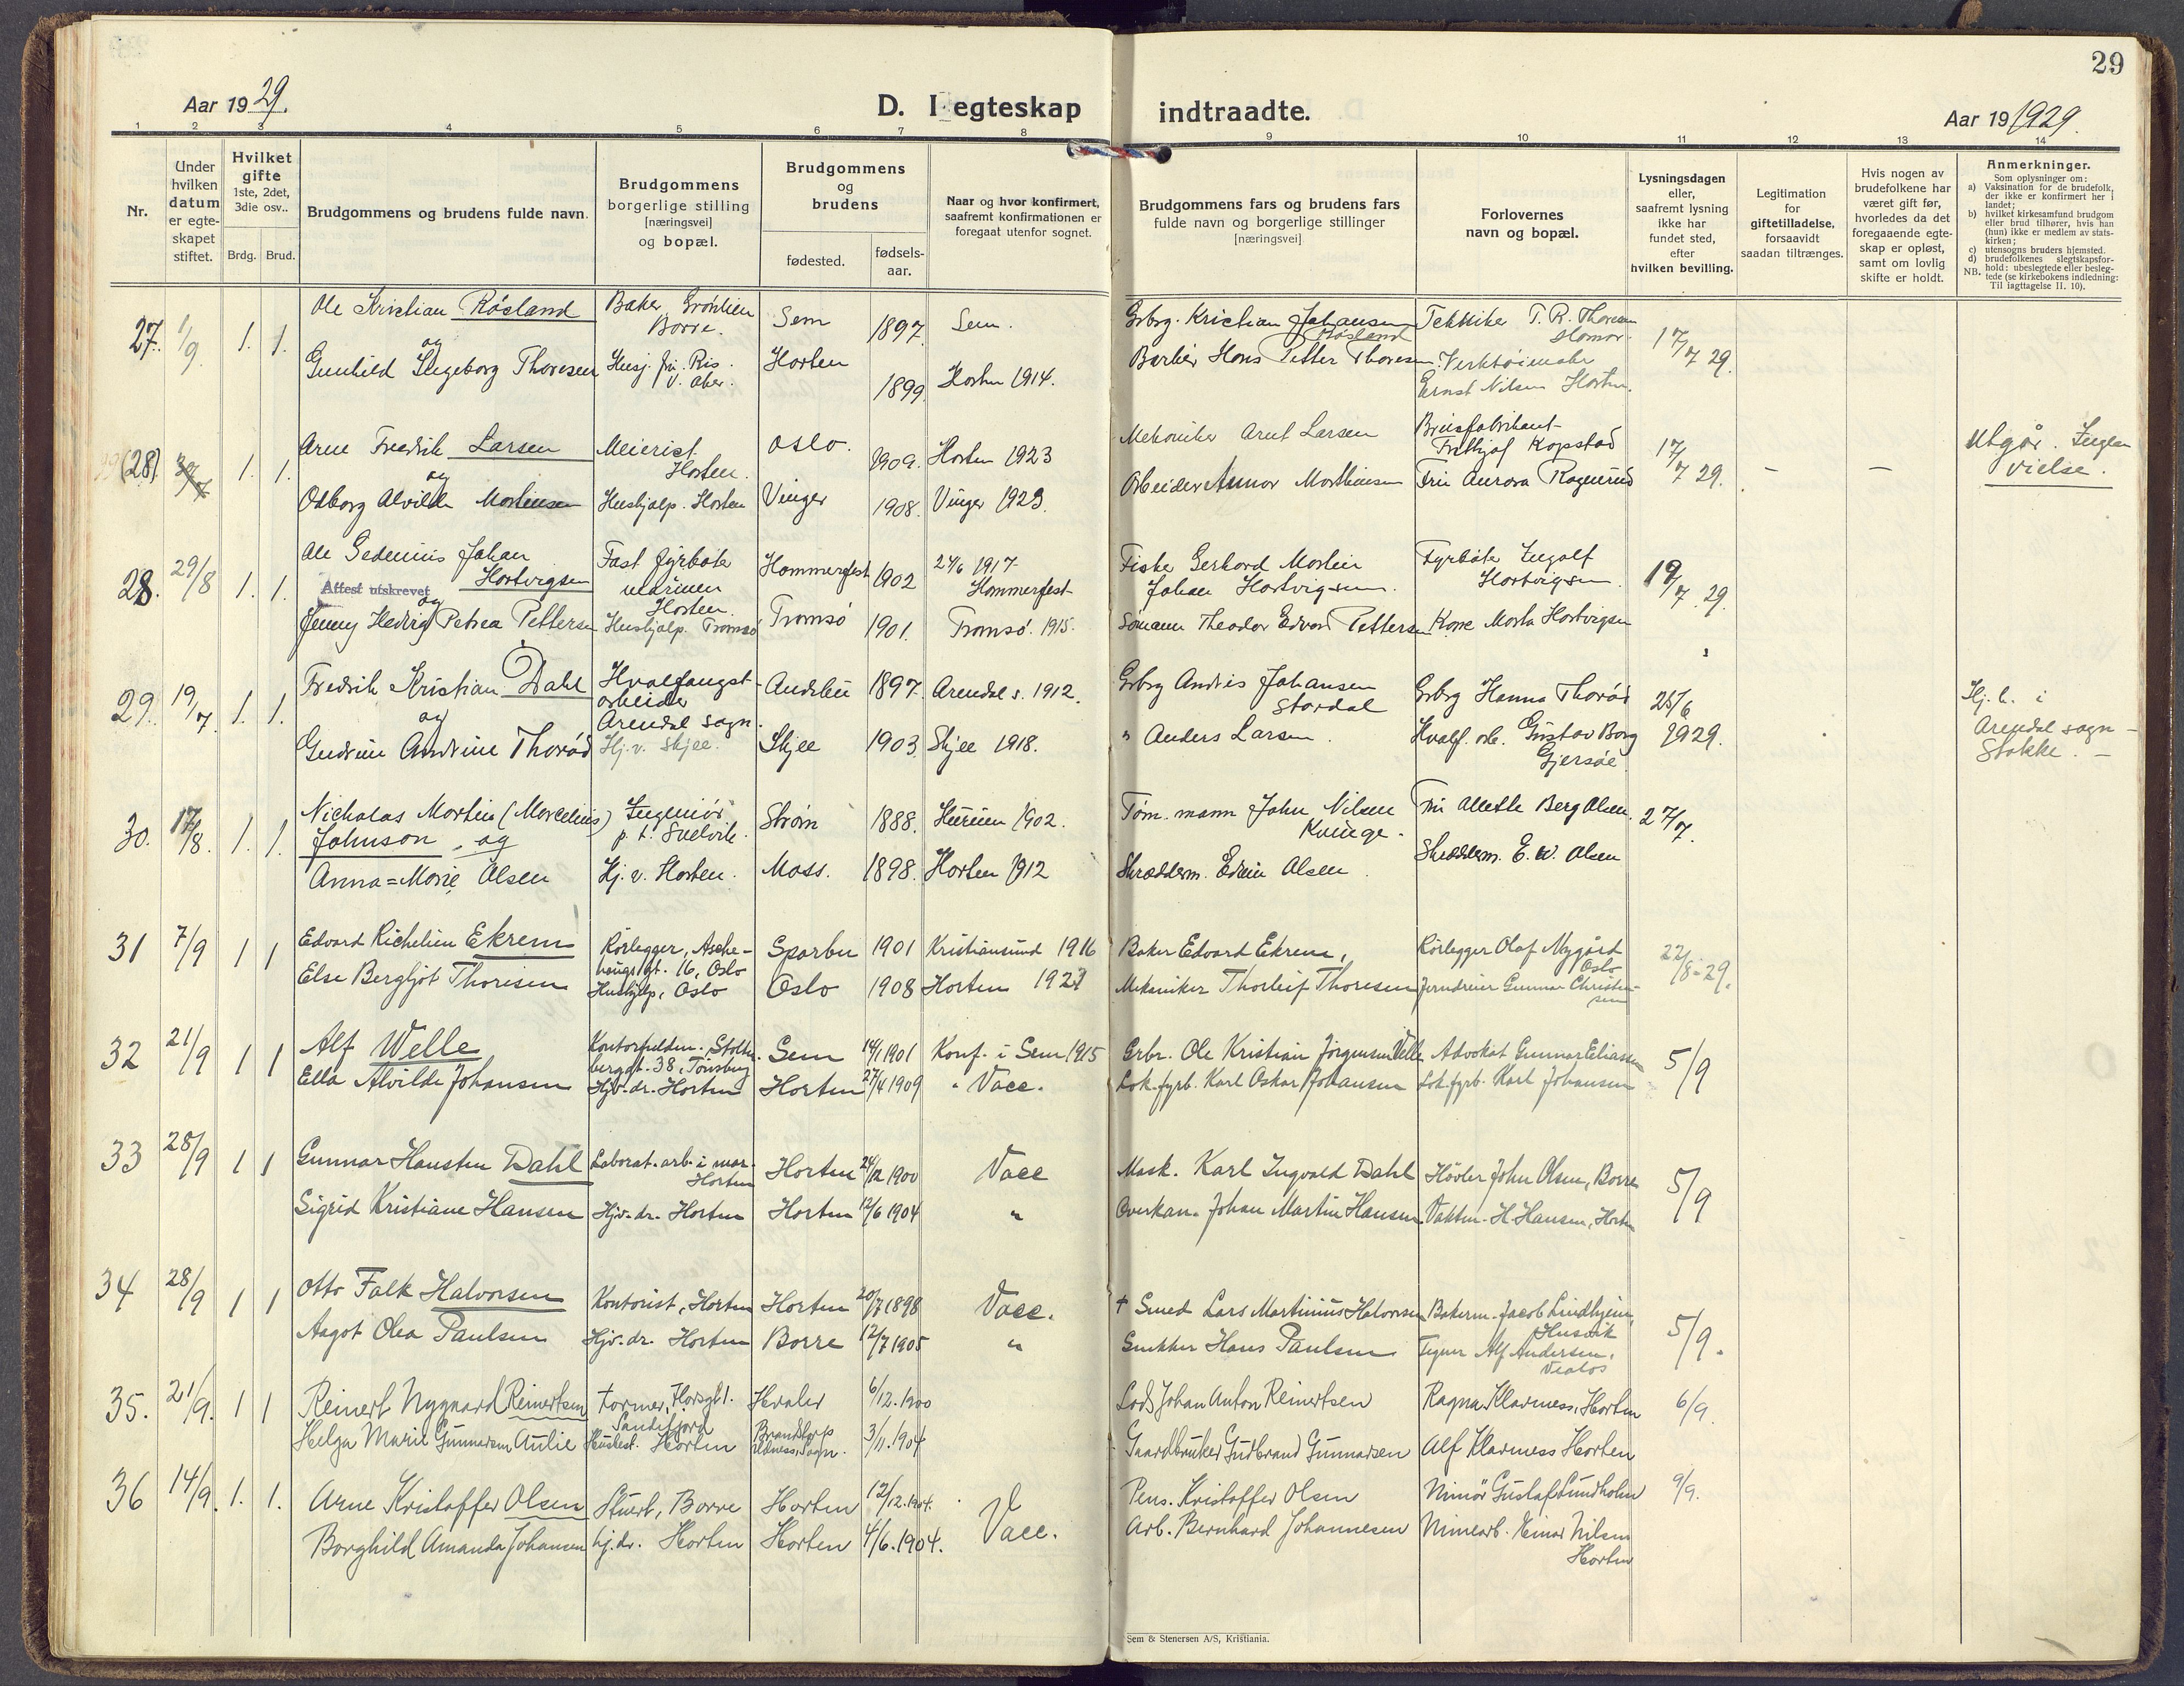 29
Aar 1929.
D. I egteskap indtraadte.
Aar 19 1929.
1 2 3 4 5 6 7 8 9 10 11 12 13 14
Nr.
Under hvilken datum er egte-skapet stiftet.
Hvilket gifte 1ste, 2det, 3die osv..
Brdg. Brud.
Brudgommens og brudens fulde navn.
Brudgommens borgerlige stilling [næringsvei] og bopæl.
Brudgommens og brudens
fødested. fødsels-aar.
Naar og hvor konfirmert, saafremt konfirmationen er foregaat utenfor sognet.
Brudgommens fars og brudens fars fulde navn og borgerlige stillinger [næringsvei]
Forlovernes navn og bopæl.
Lysningsdagen eller, saafremt lysning ikke har fundet sted, efter hvilken bevilling.
Legitimation for giftetilladelse, forsaavidt saadan tiltrænges.
Hvis nogen av brudefolkene har været gift før, hvorledes da det foregaaende egte-skap er opløst, samt om lovlig skifte er holdt.
Anmerkninger.
Som oplysninger om:
a) Vaksination for de brudefolk, der ikke er konfirmert her i landet;
b) hvilket kirkesamfund brudgom eller brud tilhører, hvis han (hun) ikke er medlem av stats-kirken;
c) utensogns bruders hjemsted.
d) brudefolkenes slegtskapsfor-hold: ubeslegtede eller besleg-tede (se kirkebokens indledning: Til iagttagelse II. 10).
NB.
27. 1/9. 1. 1. Ole Kristian Røsland Baker Grønlien Borre. Sem 1897. Sem. Grbrg. Kristian Johansen Røsland Tekniker T. R. Thoresen Hamar. 17/7 29.
og
Gunhild Ingeborg Thoresen Husj. fru Riis. V. Aker. Horten 1899. Horten 1914. Barber Hans Petter Thoresen. Verktøimaker Ernst Nilsen Horten.
(28) 1. 1. Arne Fredrik Larsen Meierist Horten. Oslo. 1909. Horten 1923 Mekaniker Arnt Larsen Brusfabrikant Fridtjof Kopstad 17/7 29. – – Utgår. Ingen vielse.
og
Odborg Alvilde Mortensen Hushjelp. Horten Vinger 1908. Vinger 1923. Arbeider Mortensen Fru Aurora
28. 29/8 1. 1. Ole Gedenius Johan Hartvigsen Fast fyrbøter marinen Horten. Hammerfest 1902 24/6 1917 Hammerfest Fisker Gerhard Martin Johan Hartvigsen. Fyrbøter Ingolf Hartvigsen. 19/7 29.
Attest utskrevet
og
Jenny Hedvig Petrea Pettersen Hushjelp. Tromsø Tromsø 1901. Tromsø. 1915. Sømann Theodor Edvard Pettersen Kone Marta Hartvigsen
29. 19/7 1. 1. Fredrik Kristian Dahl Hvalfangst-arbeider Arendal sogn. Andebu 1897. Arendal s. 1912. Grbrg Andreas Johansen Stordal Grbrg Hanna Thorød 25/6 1929. Hj. h. i Arendal sogn – Stokke. –
og
Gudrun Andrine Thorød Hj. v. Skjee. Skjee 1903. Skjee 1918. " Anders Larsen. Hvalf. arb. Gustav Borg Gjersøe.
30. 17/8. 1. 1. Nicholas Martin (Marcelius) Johnson og Ingeniør p. t. Svelvik. Strøm 1888. Hurum 1902. Tøm. mann John Nilsen Kvinge. Fru Alette Berg Olsen. 27/7.
Anna=Marie Olsen Hj. v. Horten. Moss. 1898. Horten 1912 Skrædderm. Edvin Olsen. Skrædderm. E. W. Olsen
31 7/9 1 1 Edvard Richelieu Ekrem Rørlegger, Asche-haugsgt. 16, Oslo Sparbu 1901 Kristiansund 1916 Baker Edvard Ekrem, Rørlegger Olaf Nygård Oslo 22/8-29.
Else Bergljot Thoresen Hushjelp, Oslo Oslo 1908 Horten 1923 Mekaniker Thorleif Thoresen Jerndreier Gunnar Christensen
32 21/9 1 1 Alf Welle Kontorfuldm. Stolten-bergsgt. 38, Tønsberg Sem 14/1 1901 Konf. i Sem 1915 Grbr. Ole Kristian Jørgensen Velle Advokat Gunnar Eliassen 5/9
Ella Alvilde Johansen Hjv. dr. Horten Horten 27/4 1909 " Vacc. Lok.fyrb. Karl Oskar Johansen Lok.fyrb. Karl Johansen
33 28/9 1 1 Gunnar Hansten Dahl Laborat. arb. i mar. Horten Horten 24/12 1900 Vacc Mask. Karl Ingvald Dahl Høvler John Olsen, Borre 5/9
Sigrid Kristiane Hansen Hjv. dr. Horten Horten 12/6 1904 " Overkan. Johan Martin Hansen Vaktm. H. Hansen, Horten
34 28/9 1 1 Otto Falk Halvorsen Kontorist, Horten Horten 20/7 1898 Vacc. † Smed Lars Martinius Halvorsen Bakerm. Jacob Lindhjem, Husvik 5/9.
Aagot Olea Paulsen Hjv. dr. Horten Borre 12/7 1905 " Snekker Hans Paulsen Tegner Alf Andersen, Vealøs
35. 21/9. 1 1 Reinert Nygaard Reinertsen Former, Sandefjord Hvaler 6/12. 1900 Lods Johan Anton Reinertsen Ragna Klavness, Horten 6/9.
Helga Marie Gunnarsen Aulie Husbest. Horten 3/11. 1904 Gaardbruker Gudbrand Gunnarsen Alf Klavness Horten
36 14/9. 1. 1. Arne Kristoffer Olsen Stuert, Borre Horten 12/12. 1904. Vacc. Pens. Kristoffer Olsen Minør Gustaf Lundholm 9/9.
Borghild Amanda Johansen hj. dr. Horten Horten 4/6. 1904. Arb. Bernhard Johannesen Minearb. Einar Nilsen Horten
Sem & Stenersen A/S, Kristiania.